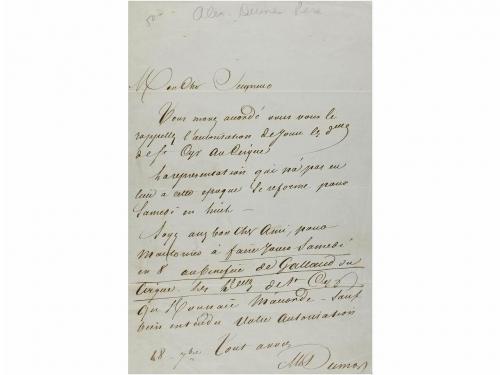 50 -
Alex. Dumas Père
Mon cher Seigneur
Vous m'avez accordé vous vous le
rappelez l'autorisation de jouer les Dlles
de St Cyr au Cirque
La representation qui n'a pas eu
lieu a cette epoque se reforme pour
Samedi en huit -
Soyez assez bon cher Ami, pour
m'autoriser à faire jouer Samedi
en 8 au benefice de Gallaud du
Cirque les Dlles de St Cyr
que Monnaie M'accorde - sauf
bien entendu votre autorisation
18 - 7bre Tout a vous
Alex Dumas